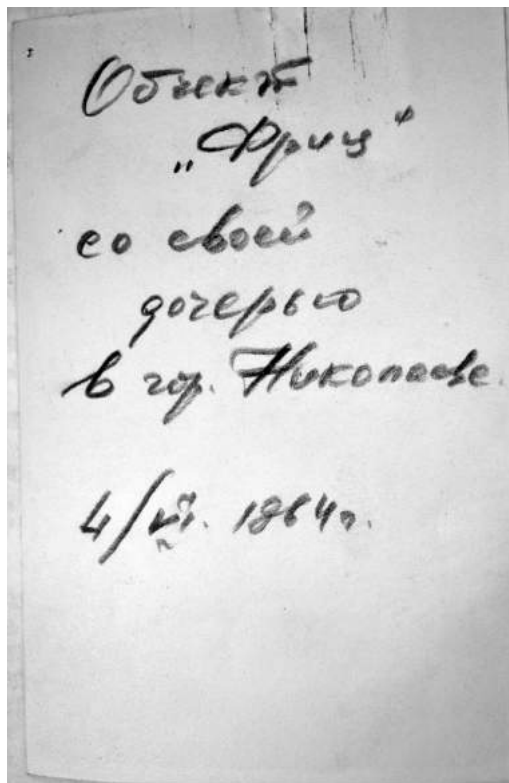 Объект
„Фриц“
со своей
дочерью
в гор. Николаеве.
1964г.